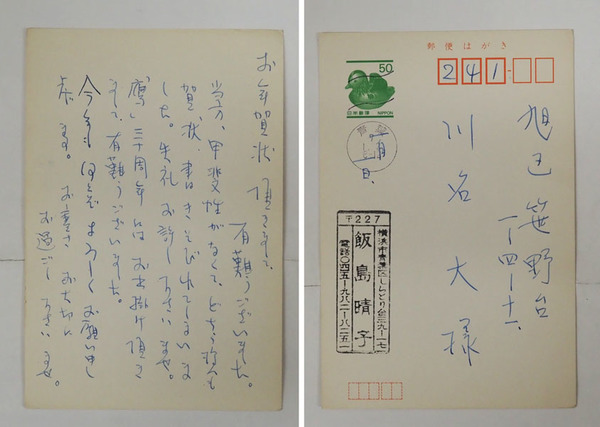 お年賀状 頂きまして
有難うございました。
当方、甲斐性がなくて、どちら様へも
賀状、書きそびれてしまいま
した。失礼お許し下さいませ。
「鷹」三十周年にはお出掛け頂き
まして、有難うございました。
今年も何とぞよろしくお願い申し
ます。
お寒さ お大切に
お過ごし下さいませ。
郵便はがき
50
日本郵便 NIPPON
241-
旭区笹野台
一ー四ー十一
川名 大様
〒227
横浜市青葉区しらとり台三九ー一七
飯島晴子
電話〇四五ー九八二ー八二五一